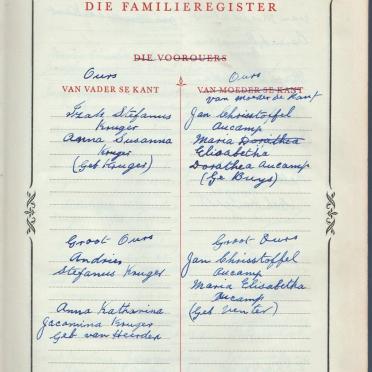 DIE FAMILIEREGISTER
DIE VOOROUERS
Ours
VAN VADER SE KANT
Izak Stefanus
Kruger
Anna Susanna
Kruger
(Geb Kruger)
Groot Ours
Andries
Stefanus Kruger
Anna Katharina
Jacomina Kruger
Geb van Heerden
Ours
VAN MOEDER SE KANT
van moeder de kant
Jan Christoffel
Aucamp
Maria Dorathea
Elisabetha
Dorathea Aucamp
(Ge Buys)
Groot Ours
Jan Christoffel
Aucamp
Maria Elisabetha
Aucamp
(Geb Venter)